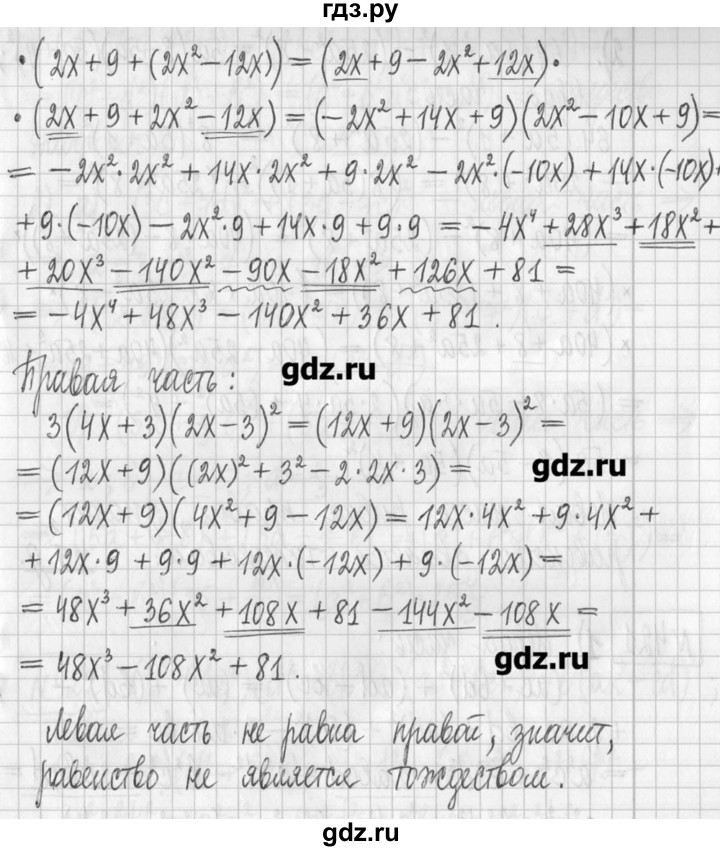 гдз.ру
·(2x+9+(2x²−12x))=(2x+9−2x²+12x)·
·(2x+9+2x²−12x)=(−2x²+14x+9)(2x²−10x+9)=
=−2x²·2x²+14x·2x²+9·2x²−2x²·(−10x)+14x·(−10x)+
+9·(−10x)−2x²·9+14x·9+9·9=−4x⁴+28x³+18x²+
+20x³−140x²−90x−18x²+126x+81=
=−4x⁴+48x³−140x²+36x+81.
Правая часть:
gdz.ru
3(4x+3)(2x−3)²=(12x+9)(2x−3)²=
=(12x+9)((2x)²+3²−2·2x·3)=
gdz.ru
=(12x+9)(4x²+9−12x)=12x·4x²+9·4x²+
+12x·9+9·9+12x·(−12x)+9·(−12x)=
=48x³+36x²+108x+81−144x²−108x=
=48x³−108x²+81.
gdz.ru
Левая часть не равна правой, значит,
равенство не является тождеством.
gdz.ru